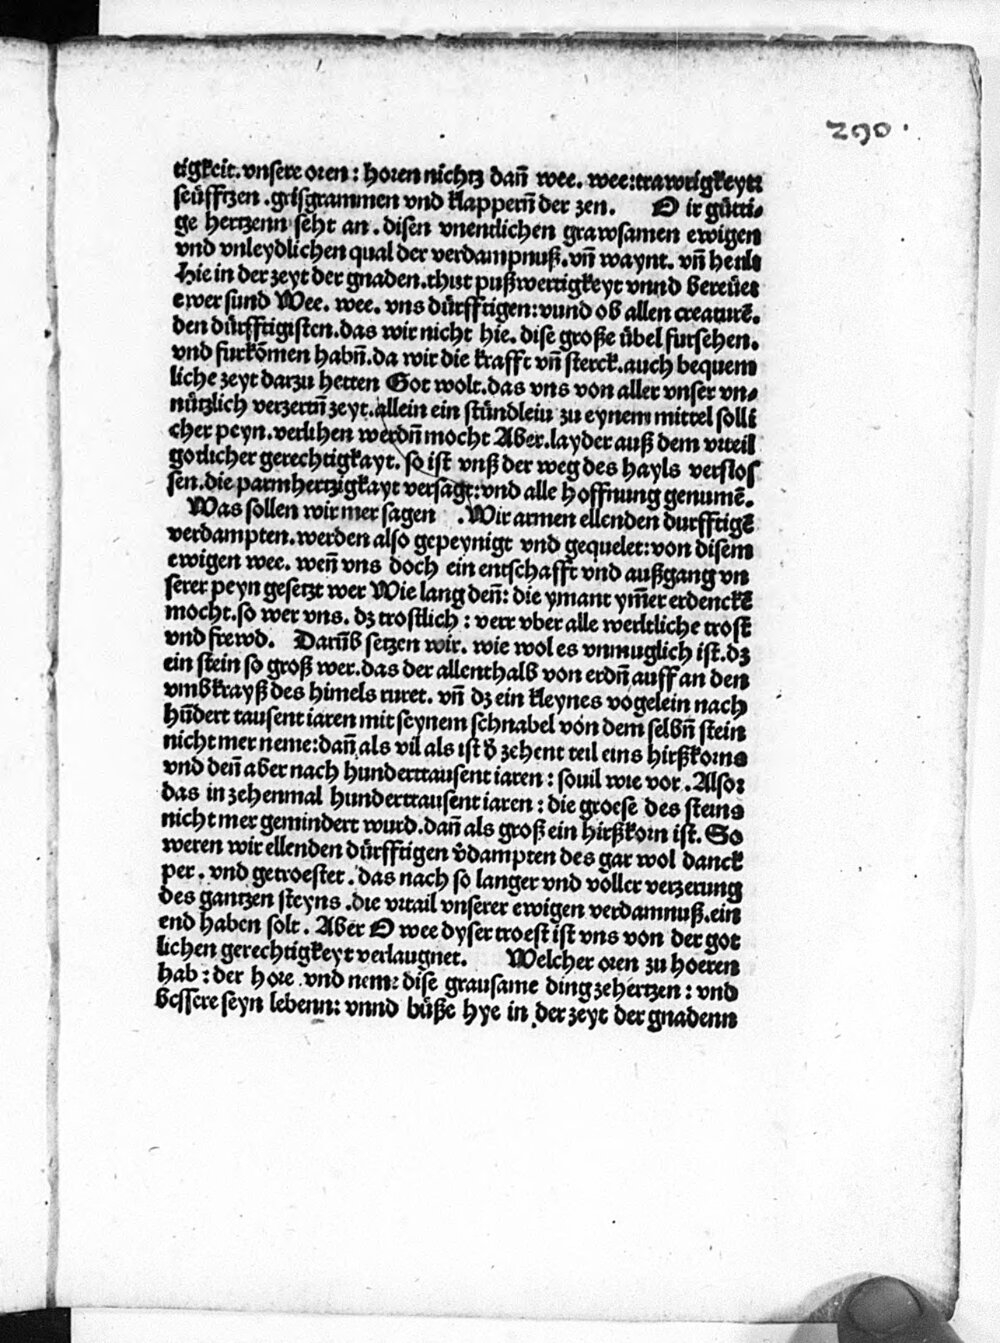 290.
tigkeit. vnsere oren: horen nichtz dañ wee. wee: trawrigkeytt
seüfftzen. grisgrammen vnd klappern̄ der zen. O ir gütti⸗
ge hertzenn seht an. disen vnentlichen grawsamen ewigen
vnd vnleydlichen qual der verdampnuß. vn̄ waynt. vn̄ heult
Hie in der zeyt der gnaden. thut pußwertigkeyt vnnd bereüet
ewer sund Wee. wee. vns dürfftigen: vund ob allen creaturē.
den dürfftigisten. das wir nicht hie. dise große übel fursehen.
vnd furkōmen habn̄. da wir die krafft vn̄ sterck. auch bequem
liche zeyt darzu hetten Got wolt. das vns von aller vnser vn⸗
nützlich verzertn̄ zeyt. allein ein stündlein zu eynem mittel solli
cher peyn. verlihen werdn̄ mocht Aber. layder auß dem vrteil
gotlicher gerechtigkayt. so ist vnß der weg des hayls verslos
sen. die parmhertzigkayt versagt: vnd alle hoffnung genumē.
Was sollen wir mer sagen . Wir armen ellenden durfftigē
verdampten. werden also gepeynigt vnd gequelet: von disem
ewigen wee. wen̄ vns doch ein entschafft vnd außgang vn
serer peyn gesetzt wer Wie lang den̄: die ymant ym̄er erdenckē
mocht. so wer vns. dz trostlich: verr vber alle werltliche trost
vnd frewd. Darūb setzen wir. wie wol es vnmuglich ist. dz
ein stein so groß wer. das der allenthalb von erdn̄ auff an den
vmbkrayß des himels ruret. vn̄ dz ein kleynes vogelein nach
hūdert tausent iaren mit seynem schnabel von dem selbn̄ stein
nicht mer neme: dan̄ als vil als ist d̄ zehent teil eins hirßkorns
vnd den̄ aber nach hunderttausent iaren: souil wie vor. Also:
das in zehenmal hunderttausent iaren: die groese des steins
nicht mer gemindert wurd. dan̄ als groß ein hirßkorn ist. So
weren wir ellenden dürfftigen v̄dampten des gar wol danck
per. vnd getroestet. das nach so langer vnd voller verzerung
des gantzen steyns. die vrtail vnserer ewigen verdamnuß. ein
end haben solt. Aber O wee dyser troest ist vns von der got
lichen gerechtigkeyt verlaugnet. Welcher oren zu hoeren
hab: der hore. vnd nem: dise grausame ding zehertzen: vnd
bessere seyn lebenn: vnnd büße hye in der zeyt der gnadenn